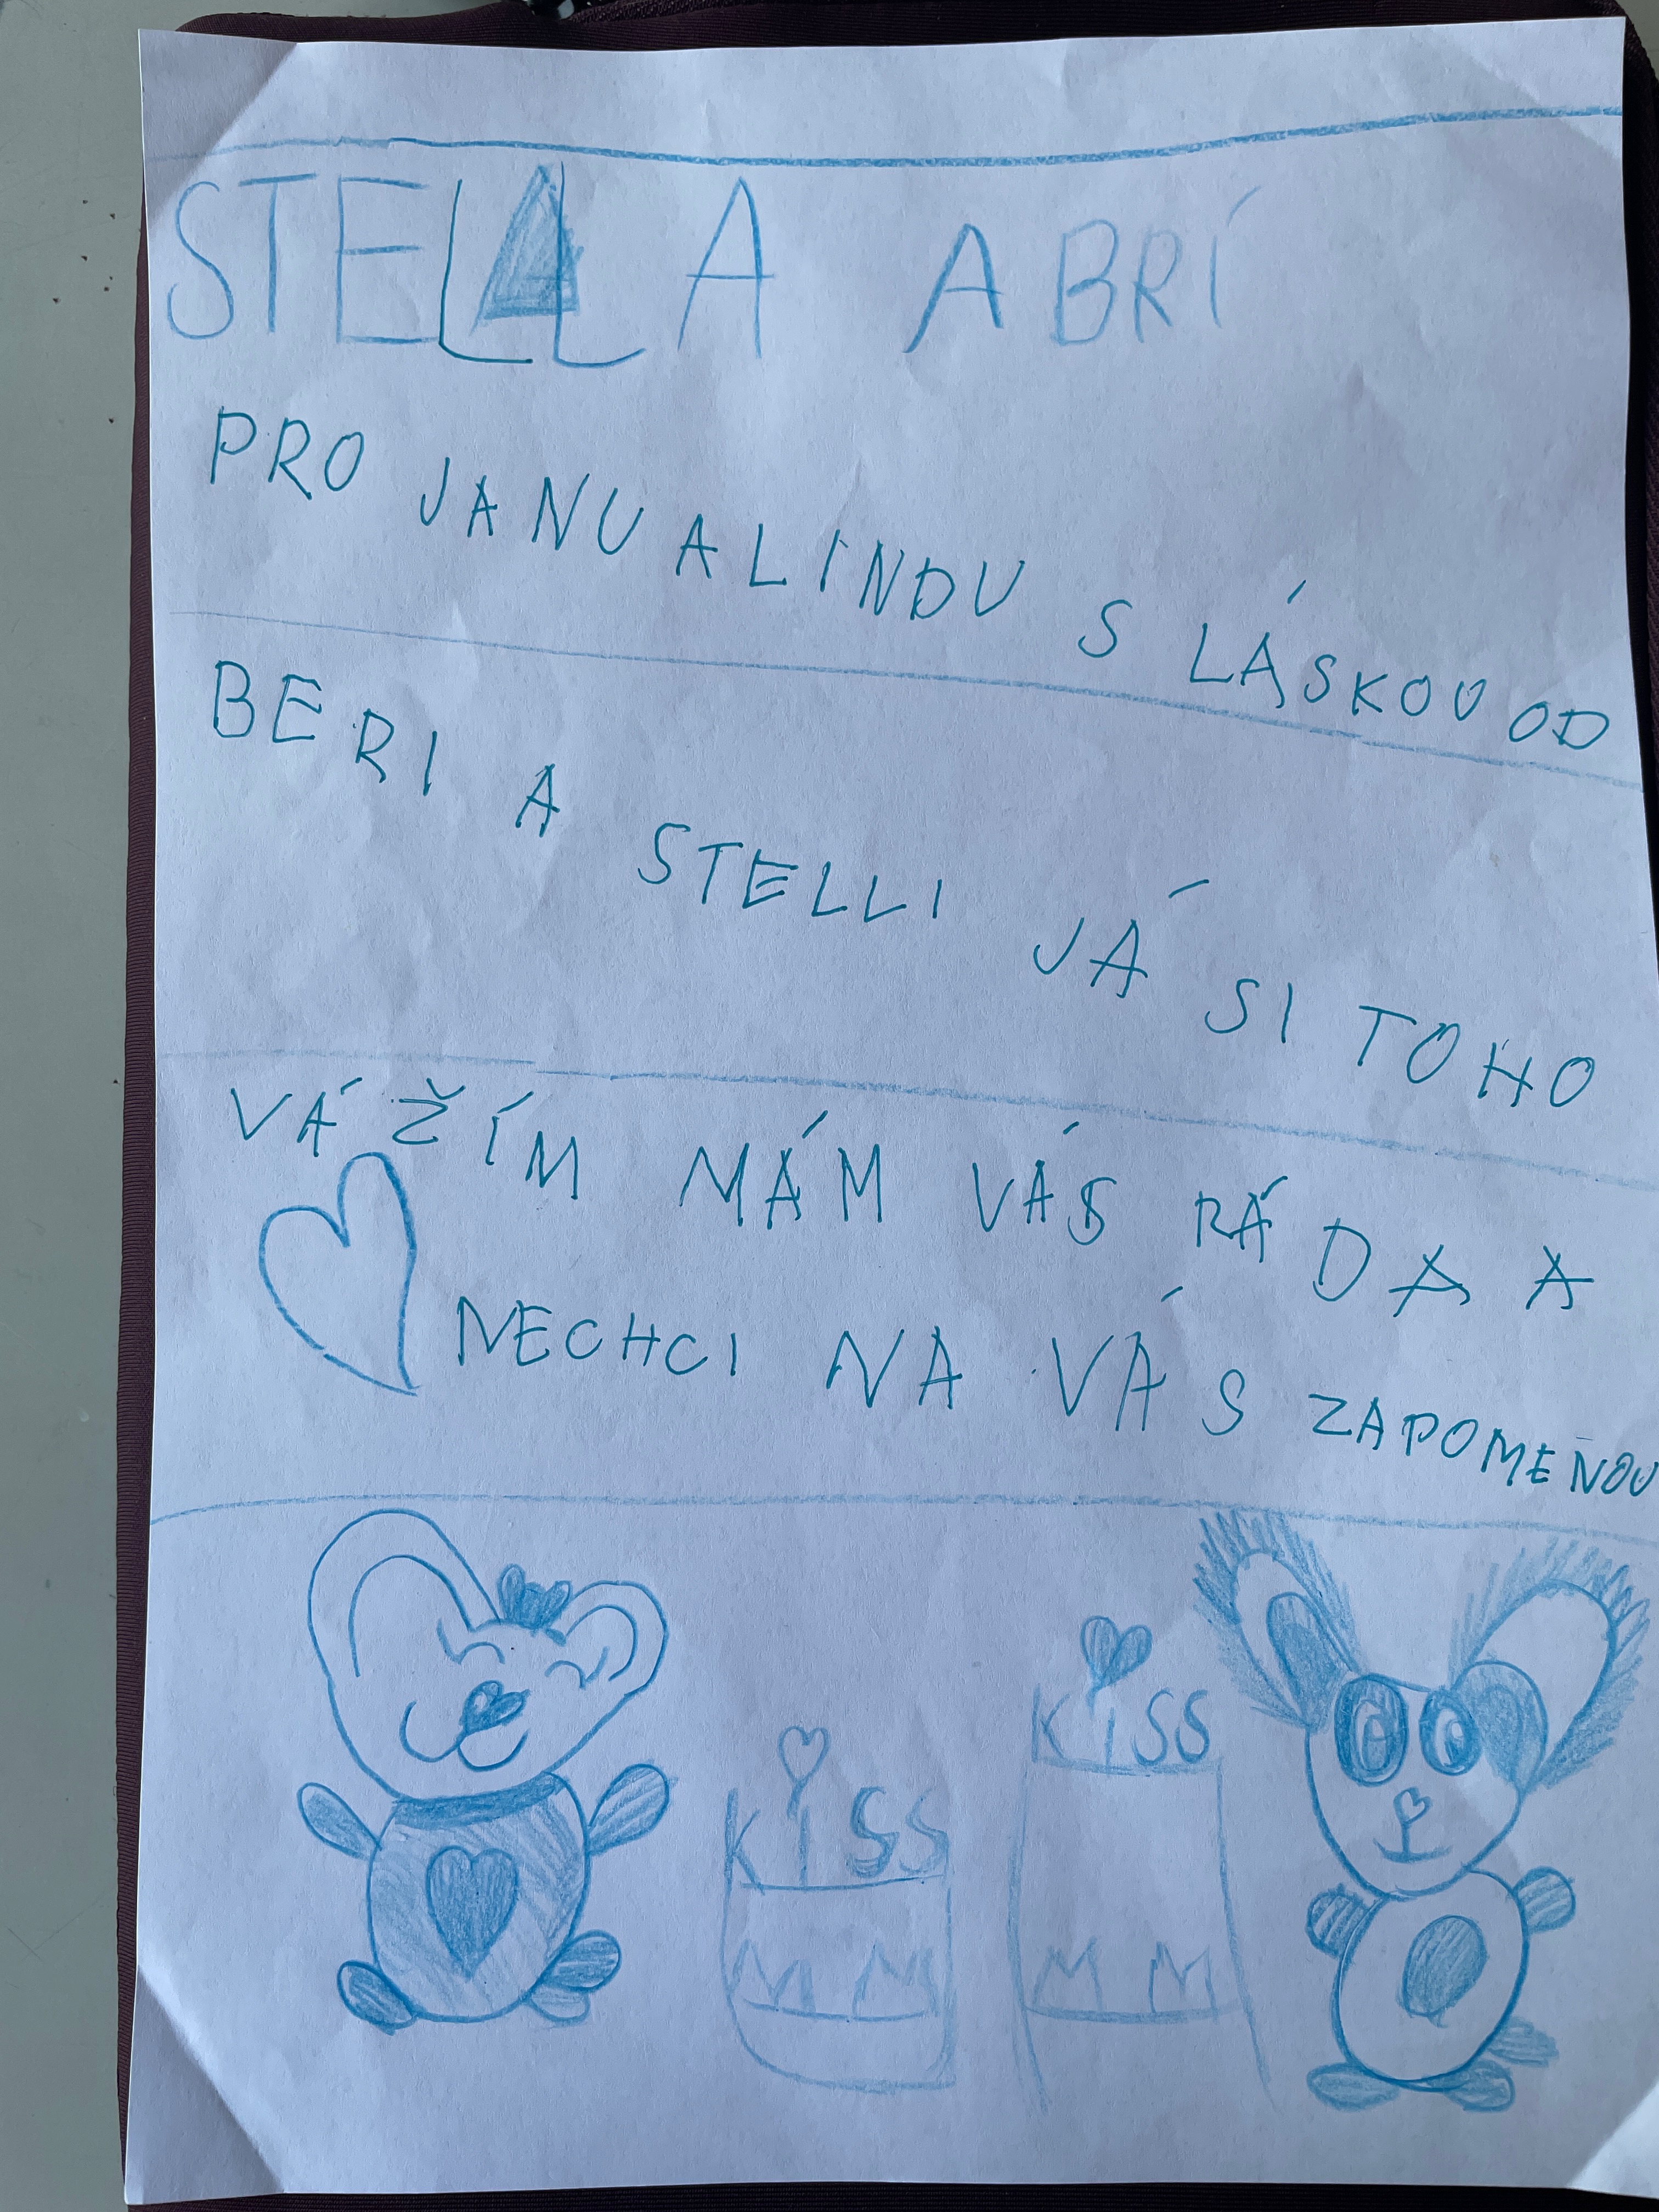 STELLA A BRÍ
PRO JANU A LINDU S LÁSKOU OD
BERI A STELLI JÁ SI TOHO
VÁŽÍM MÁM VÁS RÁDA A
NECHCI NA VÁS ZAPOMEŇOU
KiSS
KiSS
M M
M M